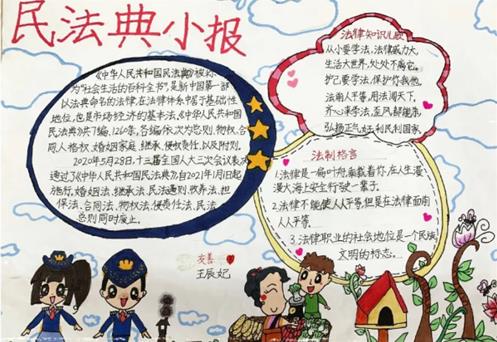 民法典小报
《中华人民共和国民法典》被称
为"社会生活的百科全书",是新中国第一部
以法典命名的法律,在法律体系中居于基础性
地位,也是市场经济的基本法。《中华人民共和国
民法典》共7编、1260条,各编依次为总则、物权、合
同、人格权、婚姻家庭、继承、侵权责任,以及附则。
2020年5月28日,十三届全国人大三次会议表决
通过了《中华人民共和国民法典》,自2021年1月1日起
施行。婚姻法、继承法、民法通则、收养法、担
保法、合同法、物权法、侵权责任法、民法
总则同时废止。
友善
王辰妃
法律知识儿歌
从小要学法,法律威力大,
生活大世界,处处不离它。
护己要学法,保护你我他,
法前人平等,用法闯天下,
齐心来学法,歪风都砸垮,
弘扬正气好,利民利国家。
法制格言
1.法律是一扁叶舟,乘载着你,在人生漫
漫大海上安全行驶一辈子。
2.法律不能使人人平等,但是在法律面前
人人平等。
3.法律职业的社会地位是一个民族
文明的标志。